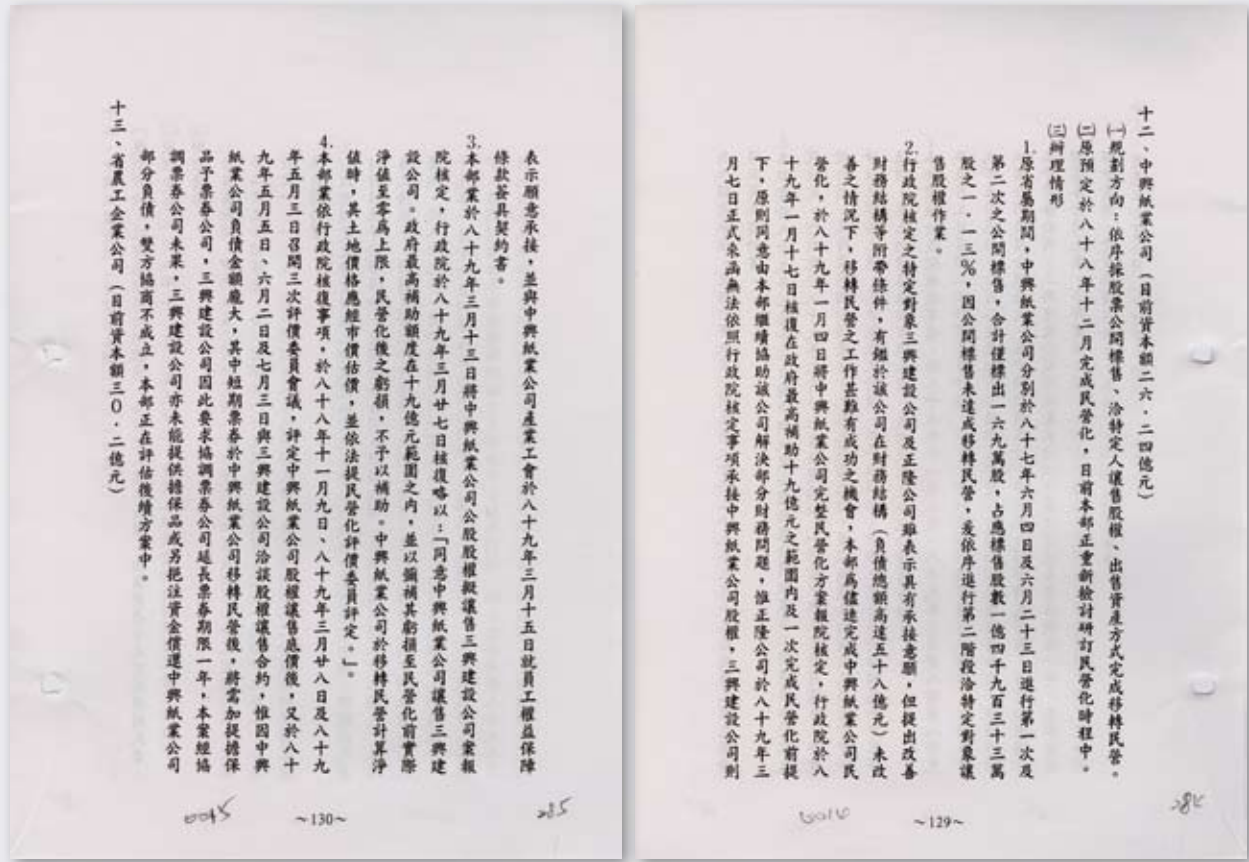 十二、中興紙業公司（目前資本額二六．二四億元）
㈠規劃方向：依序採股票公開標售、洽特定人讓售股權、出售資產方式完成移轉民營。
㈡原預定於八十八年十二月完成民營化，目前本部正重新檢討研訂民營化時程中。
㈢辦理情形
1.原省屬期間，中興紙業公司分別於八十七年六月四日及六月二十三日進行第一次及
第二次之公開標售，合計僅標出一六九萬股，占應標售股數一億四千九百三十三萬
股之一．一三％，因公開標售未達成移轉民營，爰依序進行第二階段洽特定對象讓
售股權作業。
2.行政院核定之特定對象三興建設公司及正隆公司雖表示具有承接意願，但提出改善
財務結構等附帶條件，有鑑於該公司在財務結構（負債總額高達五十八億元）未改
善之情況下，移轉民營之工作甚難有成功之機會，本部為儘速完成中興紙業公司民
營化，於八十九年一月四日將中興紙業公司完整民營化方案報院核定，行政院於八
十九年一月十七日核復在政府最高補助十九億元之範圍內及一次完成民營化前提
下，原則同意由本部繼續協助該公司解決部分財務問題，惟正隆公司於八十九年三
月七日正式來函無法依照行政院核定事項承接中興紙業公司股權，三興建設公司則
~129~
284
表示願意承接，並與中興紙業公司產業工會於八十九年三月十五日就員工權益保障
條款簽具契約書。
3.本部業於八十九年三月十三日將中興紙業公司公股股權擬讓售三興建設公司案報
院核定，行政院於八十九年三月廿七日核復略以：「同意中興紙業公司讓售三興建
設公司。政府最高補助額度在十九億元範圍之內，並以彌補其虧損至民營化前實際
淨值至零為上限，民營化後之虧損，不予以補助。中興紙業公司於移轉民營計算淨
值時，其土地價格應經市價估價，並依法提民營化評價委員評定。」。
4.本部業依行政院核復事項，於八十八年十一月九日、八十九年三月廿八日及八十九
年五月三日召開三次評價委員會議，評定中興紙業公司股權讓售底價後，又於八十
九年五月五日、六月二日及七月三日與三興建設公司洽談股權讓售合約，惟因中興
紙業公司負債金額龐大，其中短期票券於中興紙業公司移轉民營後，將需加提擔保
品予票券公司，三興建設公司因此要求協調票券公司延長票券期限一年，本案經協
調票券公司未果，三興建設公司亦未能提供擔保品或另挹注資金償還中興紙業公司
部分負債，雙方協商不成立，本部正在評估後續方案中。
十三、省農工企業公司（目前資本額三０．二億元）
~130~
285